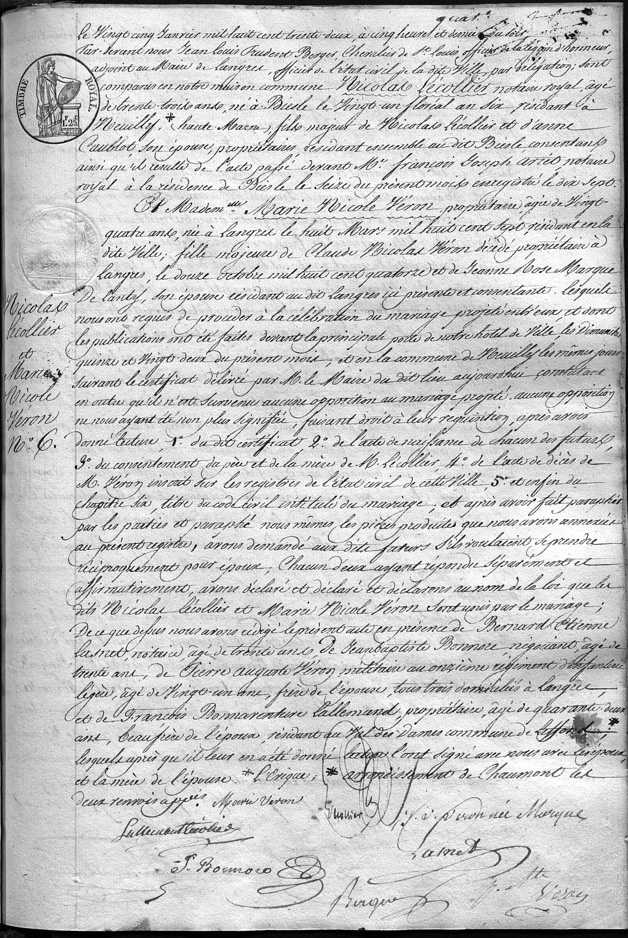 Le Vingt cinq Janvier mil huit cent trente deux, à cinq heures et demie du soir
Par-devant nous Jean Louis Prudent Berger, Chevalier de St. Louis officier de la légion d'honneur,
adjoint au Maire de Langres, officier de l'état civil de la dite Ville, par délégation; sont
comparus en notre maison commune Nicolas Lécollier notaire royal, âgé
de trente trois ans, né à Biesle le Vingt un floréal an six, résidant à
Neuilly, * haute Marne; fils majeur de Nicolas Lécollier et d'anne
Caublot son épouse, propriétaires résidant ensemble au dit Biesle consentans
ainsi qu'il résulte de l'acte passé devant Me. françois Joseph notaire
royal à la résidence de Biesle le Seize du présent mois enregistré le dix sept.
Et Mademelle Marie Nicole Véron, propriétaire, âgée de Vingt-
quatre ans, née à Langres le huit Mars mil huit cent sept résidant en la
dite Ville; fille majeure de Claude Nicolas Véron décédé propriétaire à
Langres, le douze octobre mil huit cent quatorze et de Jeanne Rose Marque
son épouse résidant au dit Langres ici présente et consentante. Lesquels
nous ont requis de procéder à la célébration du mariage projeté entr'eux et dont
les publications ont été faites devant la principale porte de notre hôtel de Ville les Dimanches
quinze et Vingt deux du présent mois, et en la commune de Neuilly les mêmes jours
suivant le certificat délivré par M. le Maire du dit lieu aujourd'hui constatant
en outre qu'il n'est survenu aucune opposition au mariage projeté. aucune opposition
ne nous ayant été non plus signifiée, faisant droit à leur réquisition, après avoir
donné lecture 1° du dit certificat 2° de l'acte de naissance de chacun des futurs,
3° du consentement du père et de la mère de M. Lécollier, 4° de l'acte de décès de
M. Véron inscrit sur les registres de l'état civil de cette Ville, 5° et enfin du
chapitre six, titre du code civil intitulé du mariage; et après avoir fait parapher
par les parties et paraphé nous mêmes les pièces produites que nous avons annexées
au présent registre, avons demandé aux dits futurs s'ils voulaient se prendre
réciproquement pour époux; Chacun d'eux ayant répondu séparément et
affirmativement, avons déclaré et déclaré et déclarons au nom de la loi que les
dits Nicolas Lécollier et Marie Nicole Véron sont unis par le mariage;
De ce que dessus nous avons rédigé le présent acte en présence de Bernard Etienne
Lasnet, notaire âgé de trente ans de Jean baptiste Bonnore négociant, âgé de
trente ans, de Pierre Auguste Véron militaire au onzième régiment d'infanterie
légère, âgé de Vingt-un ans, frère de l'épouse, tous trois domiciliés à Langres,
et de François Bonnaventure Lallemand, propriétaire, âgé de quarante deux
ans, beau frère de l'époux, résidant au Val des Dames commune de *
lesquels après qu'il leur en a été donné lecture l'ont signé avec nous avec les époux,
et la mère de l'épouse. * L'Evêque, * arrondissement de Chaumont les
deux renvois app. Marie Veron
Nicolas
Lécollier
et
Marie
Nicole
Véron
N° 6.
TIMBRE ROYAL
Lécollier
Marque
Lasnet
Berger